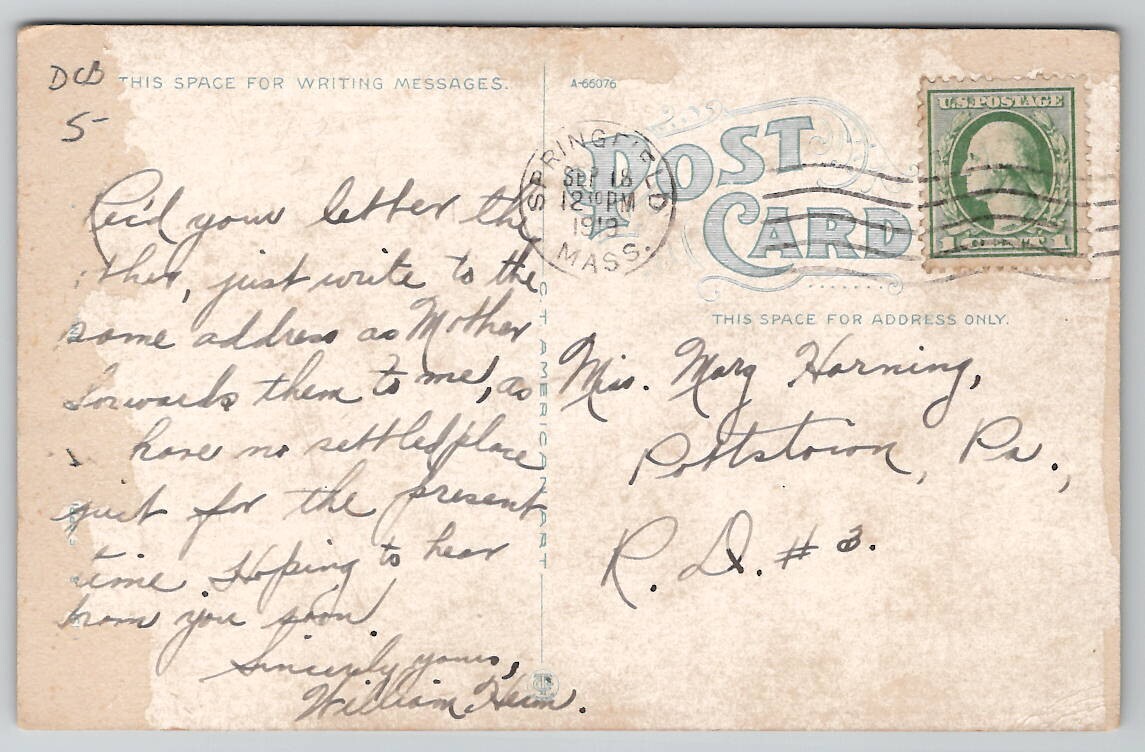 DCB
5-
THIS SPACE FOR WRITING MESSAGES.
A-66076
POST
CARD
U.S. POSTAGE
1 1
SPRINGFIELD
SEP 18
12 PM
MASS.
THIS SPACE FOR ADDRESS ONLY.
Rec'd your letter
just write to the
same address as Mother
forwards them to me, as
have no settled place
just for the present
time. Hoping to hear
from you soon.
Sincerely yours,
William Heim.
C.T. AMERICAN ART
Miss. Mary Harning,
Pottstown, Pa.,
R. D. # 3.